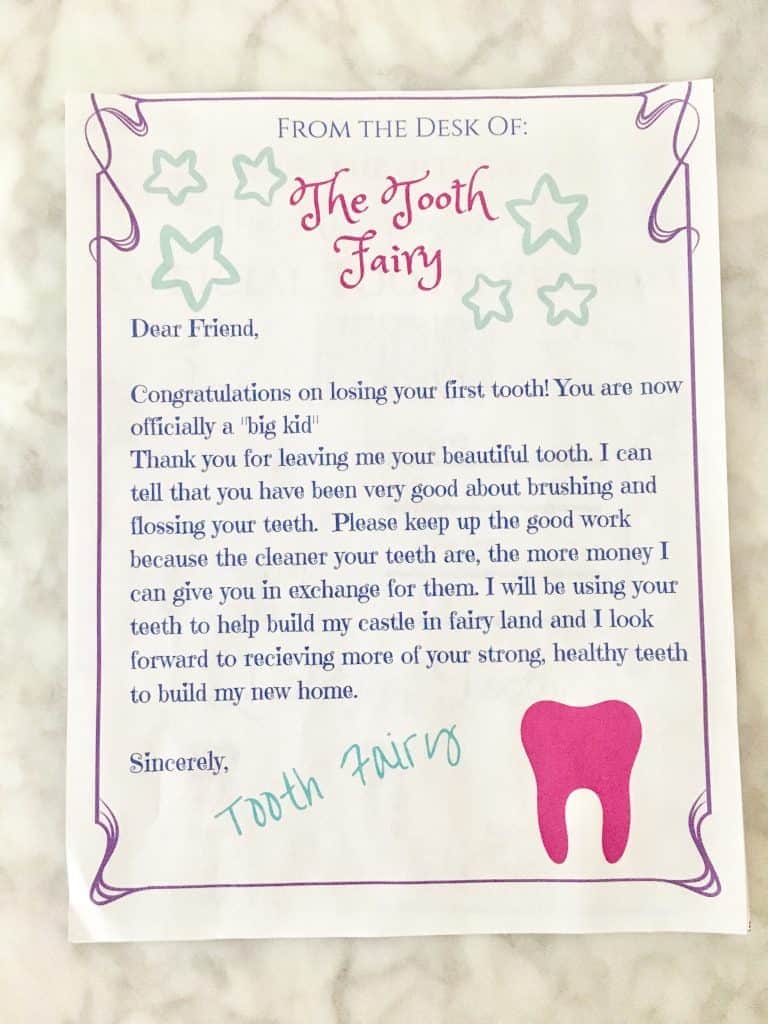 FROM THE DESK OF:
The Tooth
Fairy
Dear Friend,
Congratulations on losing your first tooth! You are now
officially a "big kid"
Thank you for leaving me your beautiful tooth. I can
tell that you have been very good about brushing and
flossing your teeth. Please keep up the good work
because the cleaner your teeth are, the more money I
can give you in exchange for them. I will be using your
teeth to help build my castle in fairy land and I look
forward to recieving more of your strong, healthy teeth
to build my new home.
Sincerely,
Tooth Fairy